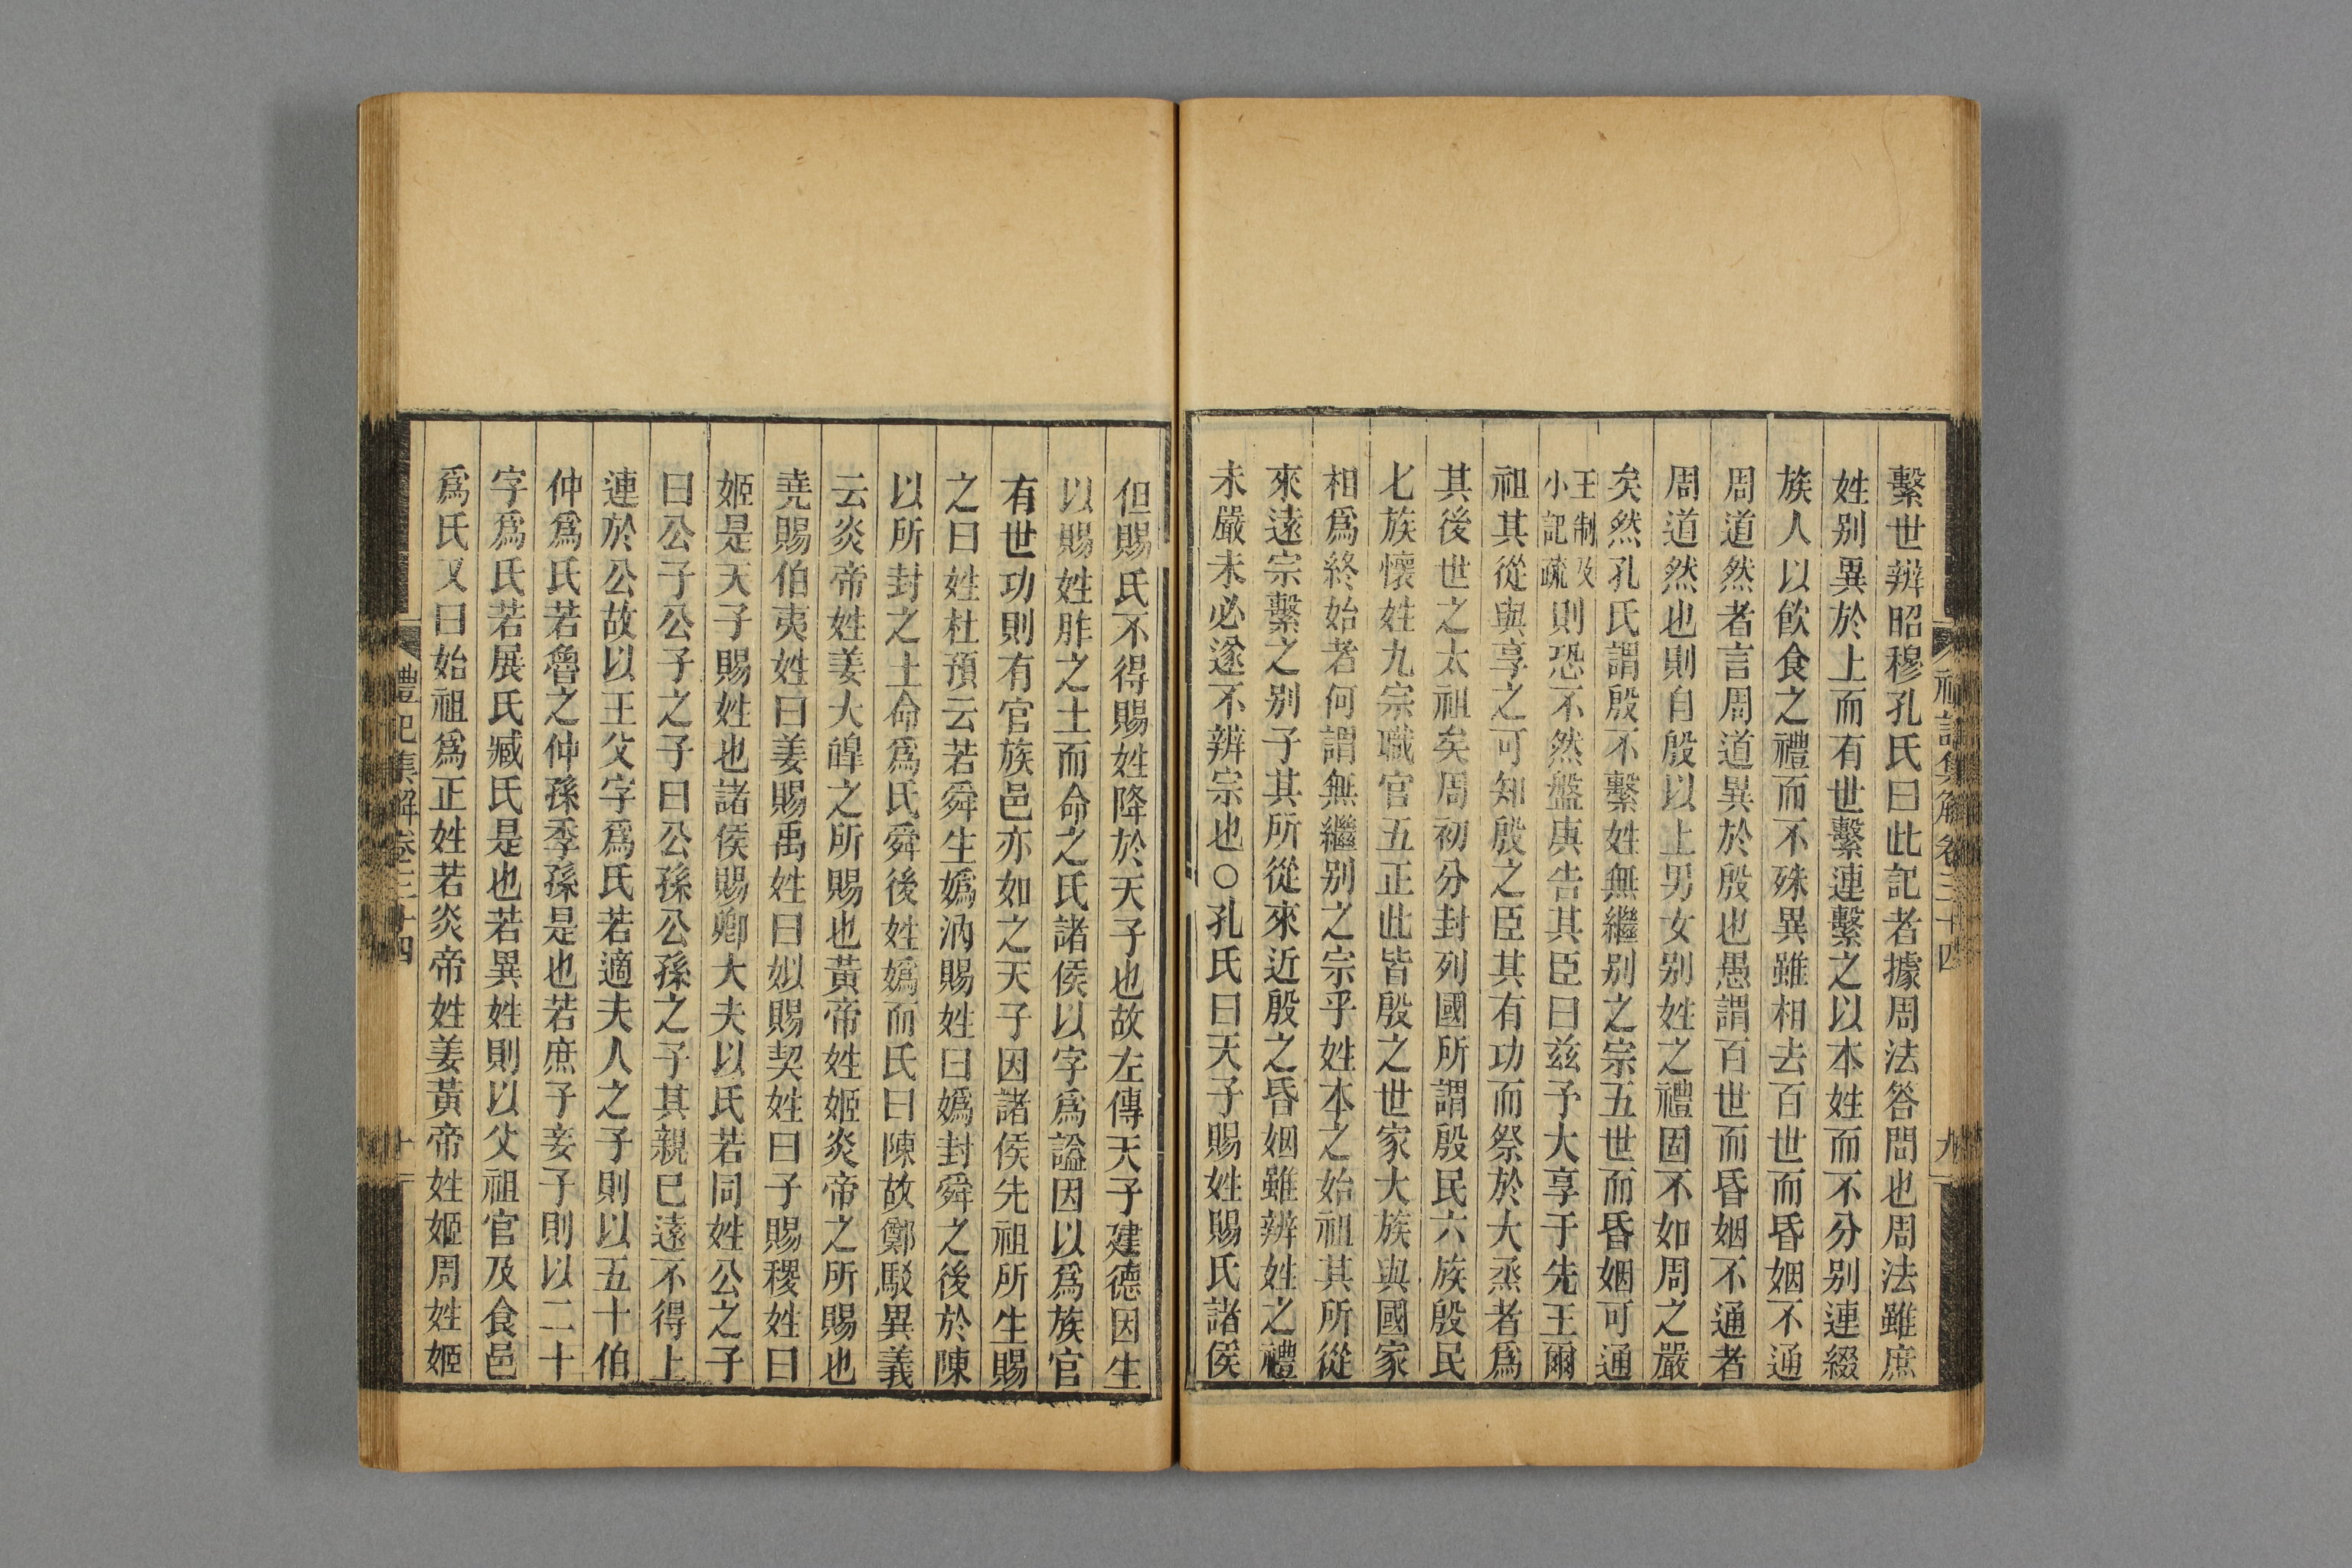 禮記集解卷三十四
九
繫世辨昭穆孔氏曰此記者據周法答問也周法雖庶
姓别異於上而有世繫連繫之以本姓而不分别連綴
族人以飲食之禮而不殊異雖相去百世而昏姻不通
周道然者言周道異於殷也愚謂百世而昏姻不通者
周道然也則自殷以上男女别姓之禮固不如周之嚴
矣然孔氏謂殷不繫姓無繼别之宗五世而昏姻可通
王制及小記疏則恐不然盤庚告其臣曰兹予大享于先王爾
祖其從與享之可知殷之臣其有功而祭於大烝者爲
其後世之太祖矣周初分封列國所謂殷民六族殷民
七族懷姓九宗職官五正此皆殷之世家大族與國家
相爲終始者何謂無繼别之宗乎姓本之始祖其所從
來遠宗繫之别子其所從來近殷之昏姻雖辨姓之禮
未嚴未必遂不辨宗也○孔氏曰天子賜姓賜氏諸侯
但賜氏不得賜姓降於天子也故左傳天子建德因生
以賜姓胙之土而命之氏諸侯以字爲謚因以爲族官
有世功則有官族邑亦如之天子因諸侯先祖所生賜
之曰姓杜預云若舜生嬀汭賜姓曰嬀封舜之後於陳
以所封之土命爲氏舜後姓嬀而氏曰陳故鄭駁異義
云炎帝姓姜大皥之所賜也黄帝姓姬炎帝之所賜也
堯賜伯夷姓曰姜賜禹姓曰姒賜契姓曰子賜稷姓曰
姬是天子賜姓也諸侯賜卿大夫以氏若同姓公之子
曰公子公子之子曰公孫公孫之子其親已遠不得上
連於公故以王父字爲氏若適夫人之子則以五十伯
仲爲氏若魯之仲孫季孫是也若庶子妾子則以二十
字爲氏若展氏臧氏是也若異姓則以父祖官及食邑
爲氏又曰始祖爲正姓若炎帝姓姜黄帝姓姬周姓姬
禮記集解卷三十四